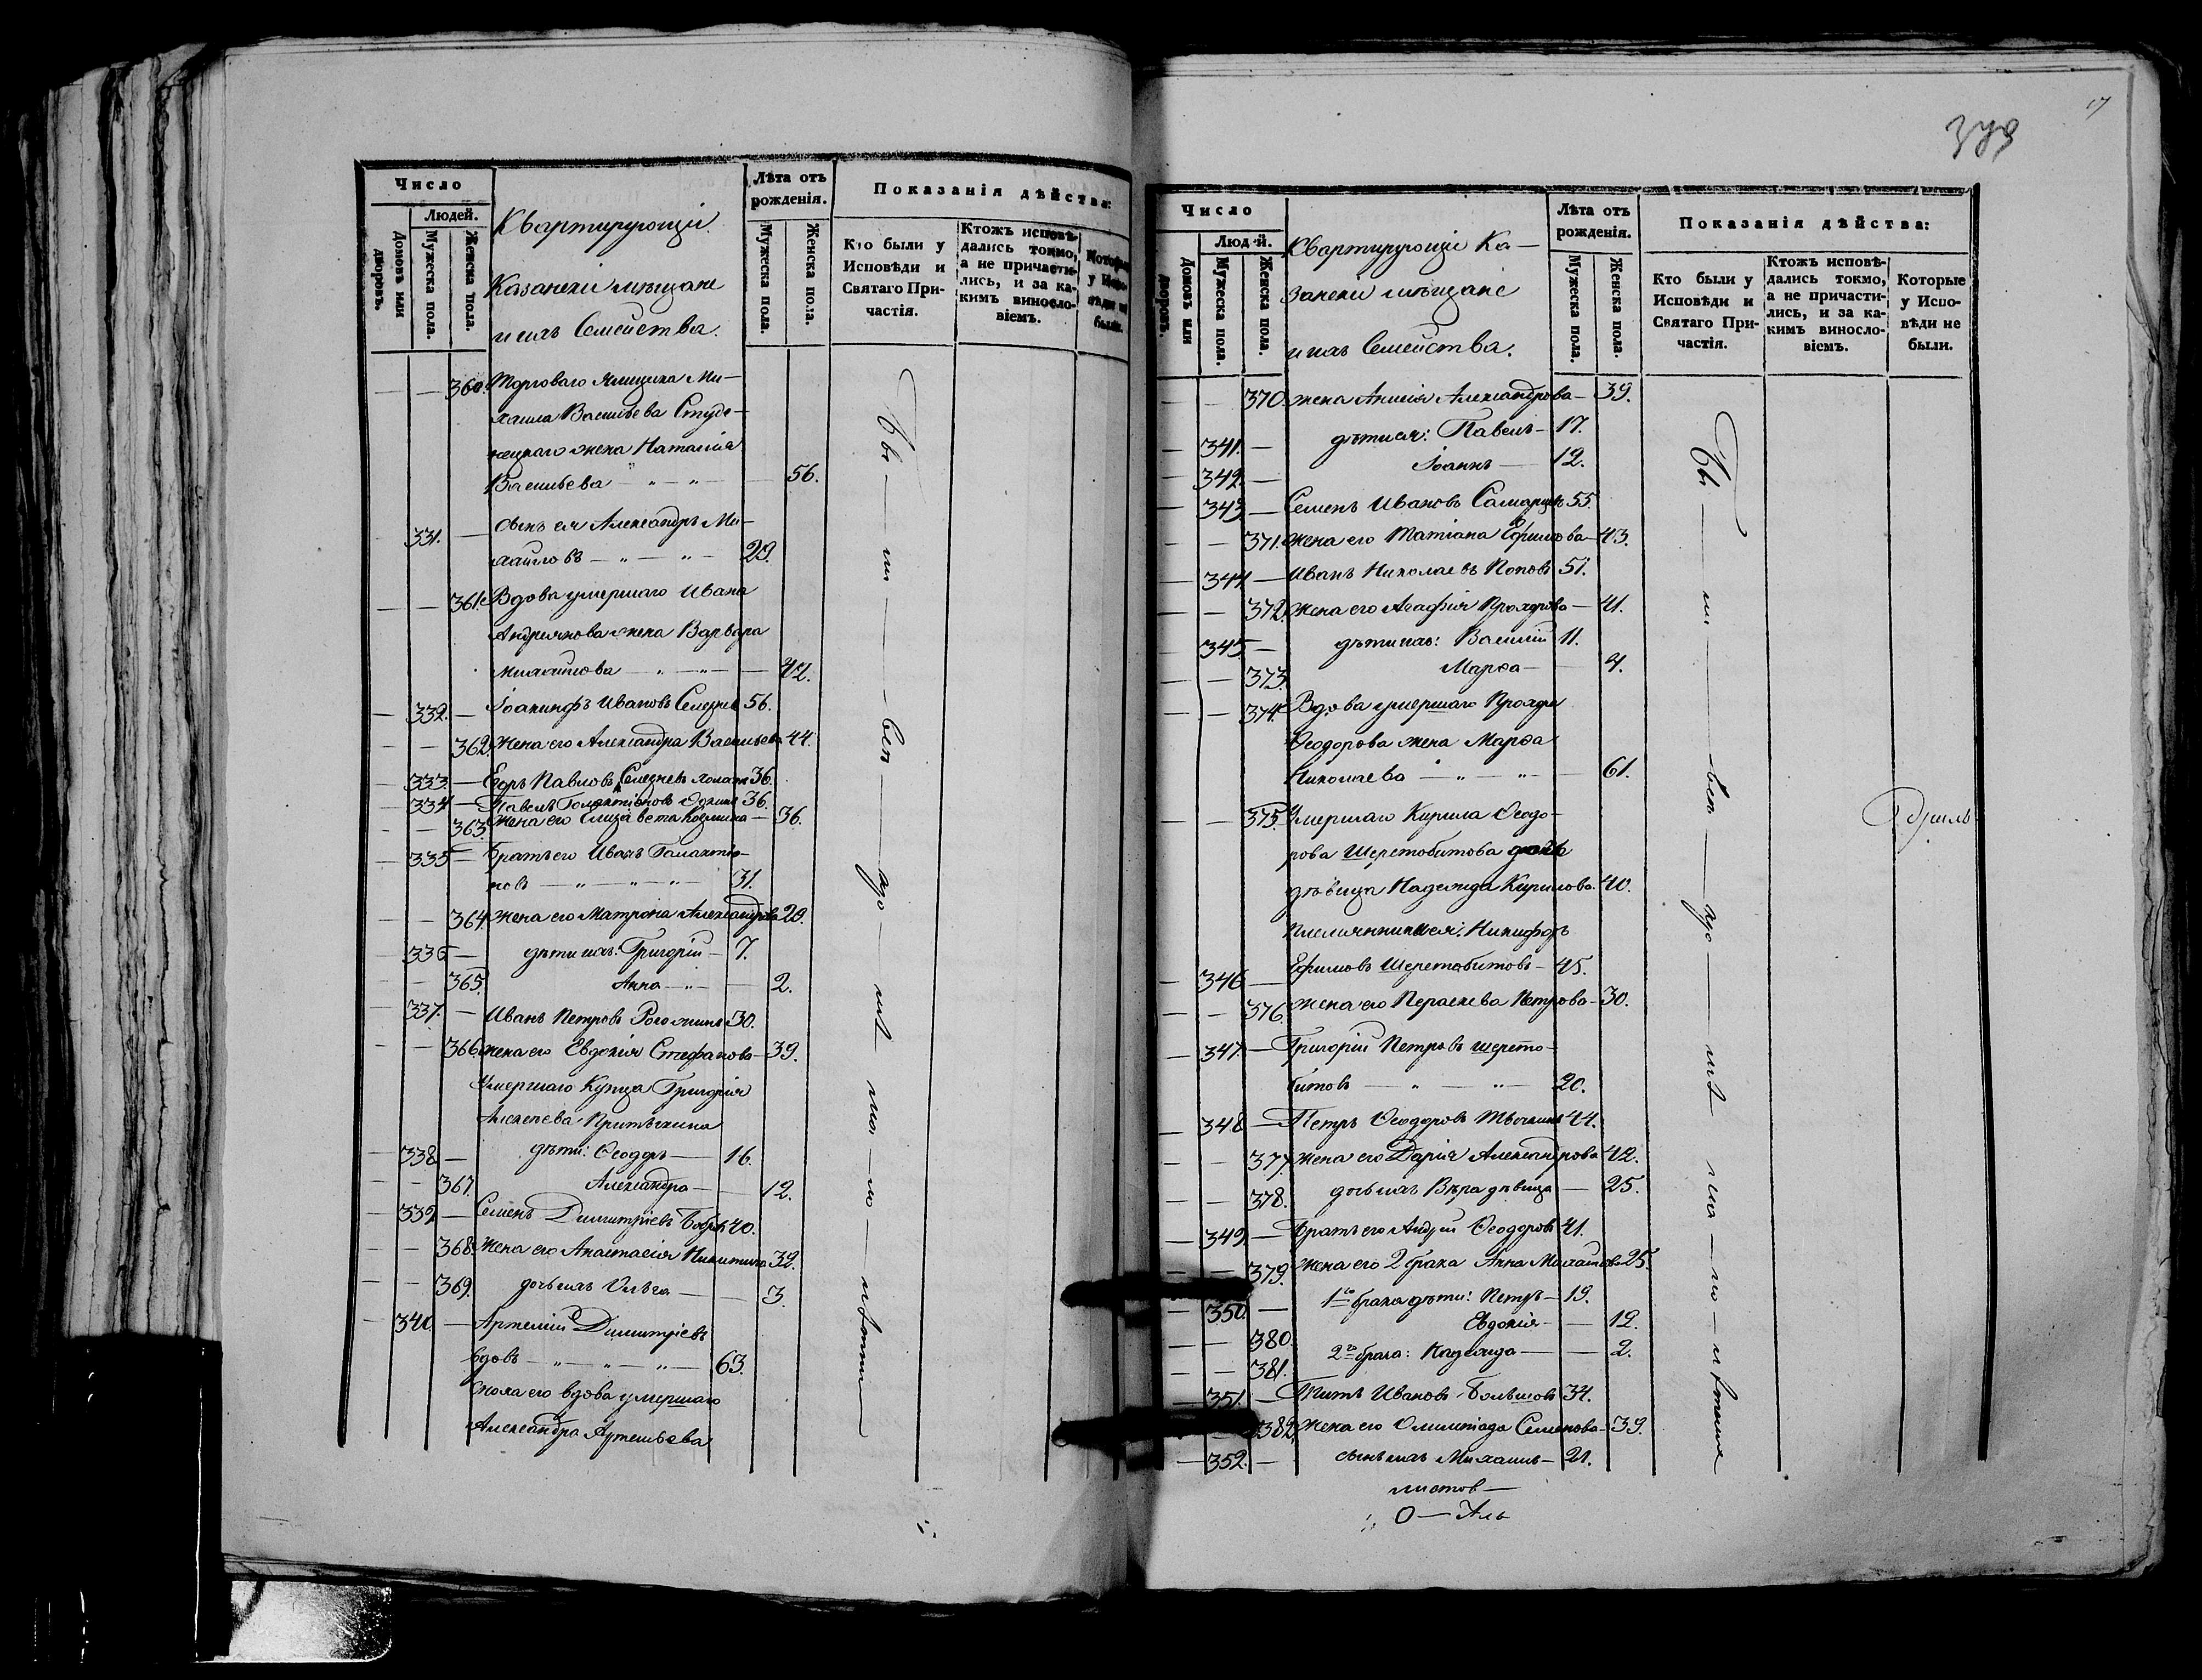 Число
Людей.
Домовъ или дворовъ.
Мужеска пола.
Женска пола.
Квартирующіи
Казанскіи мѣщане
и ихъ Семейства.
Лѣта отъ рожденія.
Мужеска пола.
Женска пола.
Показанія дѣйства:
Кто были у Исповѣди и Святаго Причастія.
Ктожъ исповѣдались токмо, а не причастились, и за какимъ винословіемъ.
Которые у Исповѣди не были.
— — 360. Торговаго Ямщика Ми—
хаила Васильева Студе—
нецкаго жена Наталія
Васильева — „ — „ — — 56.
331. — сынъ ея Александръ Ми—
хайловъ — „ — „ — 29.
— — 361. Вдова умершаго Ивана
Андреянова жена Варвара
Михайлова — „ — „ — — 42.
— 332. — Іоакинфъ Ивановъ Селезневъ 56.
— — 362. Жена его Александра Васильева 44.
— 333. — Егоръ Павловъ Селезневъ холостъ 36.
— 334 — Павелъ Галактіоновъ 36.
— — 363. Жена его Елизавета Козмина — 36.
— 335 — Братъ его Иванъ Галактіо—
новъ — „ — „ — „ — 31.
— — 364. Жена его Матрона Александрова 29.
— 336 — дѣти ихъ: Григорій — 7.
— — 365. Анна — „ — — 2.
— 337. — Иванъ Петровъ Рогожинъ 30.
— — 366. Жена его Евдокія Стефанова — 39.
Умершаго Купца Григорія
— 338 — дѣти: Ѳеодоръ — 16.
— — 367. Александра — — 12.
— 339 — Семенъ Димитріевъ 40.
— — 368. Жена его Анастасія Никитина 32.
— — 369. дочь ихъ Ольга — — 3.
— 340. — Артемій Димитріевъ
вдовъ — „ — „ — „ — 63.
Сноха его вдова умершаго
Александра Артемьева
17
Число
Людей.
Домовъ или дворовъ.
Мужеска пола.
Женска пола.
Квартирующіе Ка—
зански мѣщане
и ихъ Семейства.
Лѣта отъ рожденія.
Мужеска пола.
Женска пола.
Показанія дѣйства:
Кто были у Исповѣди и Святаго Причастія.
Ктожъ исповѣдались токмо, а не причастились, и за какимъ винословіемъ.
Которые у Исповѣди не были.
— — 370. жена Анисія Александрова — 39.
— 341. — дѣти ея: Павелъ — 17.
— 342. — Іоаннъ — 12.
— 343. — Семенъ Ивановъ Самаринъ 55.
— — 371. Жена его Татіана Ефимова — 43.
— 344. — Иванъ Николаевъ Поповъ 51.
— — 372. Жена его Агафія Прохорова — 41.
— 345. — дѣти ихъ: Василій 11.
— — 373. Марѳа — 4.
— — 374. Вдова умершаго Прохора
Ѳеодорова жена Марѳа
Николаева — „ — „ — — 61.
— — 375. Умершаго Кирила Ѳеодо—
рова Шерстобитова дочь
дѣвица Надежда Кирилова. 40.
племянники ея: Никифоръ
— 346 — Ефимовъ Шерстобитовъ — 45.
— — 376. Жена его Параскева Петрова — 30.
— 347 — Григорій Петровъ Шерсто—
битовъ — „ — „ — 20.
— 348 — Петръ Ѳеодоровъ 44.
— — 377. Жена его Дарія Александрова 42.
— — 378. дочь ихъ Вѣра дѣвица — 25.
— 349. — Братъ его Андрей Ѳеодоровъ 41.
— — 379. Жена его 2 брака Анна Михайлова 25.
— 350. — 1го брака дѣти: Петръ — 19.
— — 380. Евдокія — — 12.
— — 381. 2го брака: Надежда — — 2.
— 351. — Титъ Ивановъ Большовъ 34.
382. Жена его Олимпіада Семенова — 39.
— 352. — сынъ ихъ Михаилъ — 21.